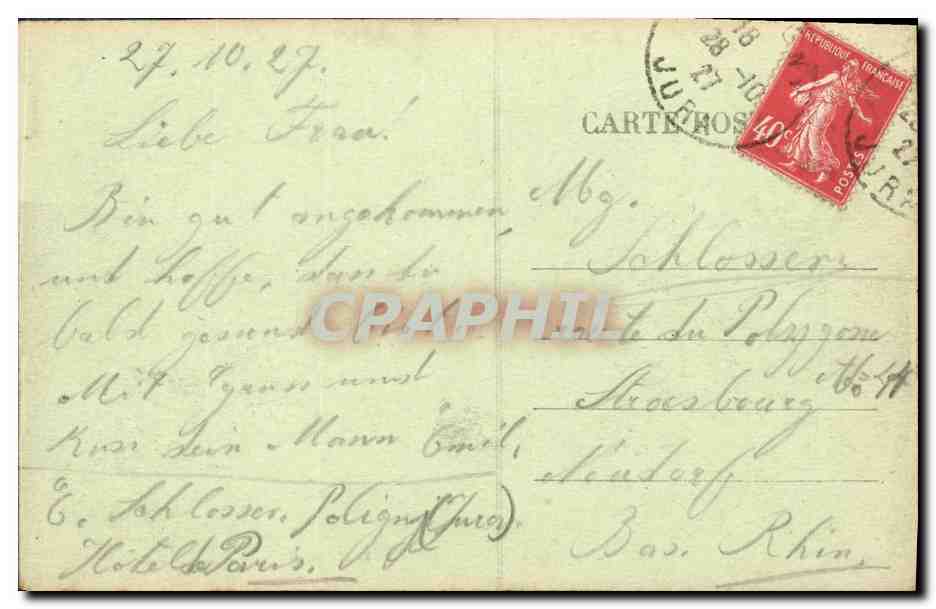 27.10.27.
Liebe Frau!
Bin gut angekommen
und hoffe, dass du
bald gesund
Mit gruss und
Kuss dein Mann Emil,
E. Schlosser. Poligny (Jura).
Hôtel de Paris.
CARTE POS
Mg.
Schlosser
route du Polygone
Strassbourg
Neudorf
Bas. Rhin.
RÉPUBLIQUE FRANÇAISE
40c
POSTES
18
28-10
27
JURA
27
JURA
CPAPHIL